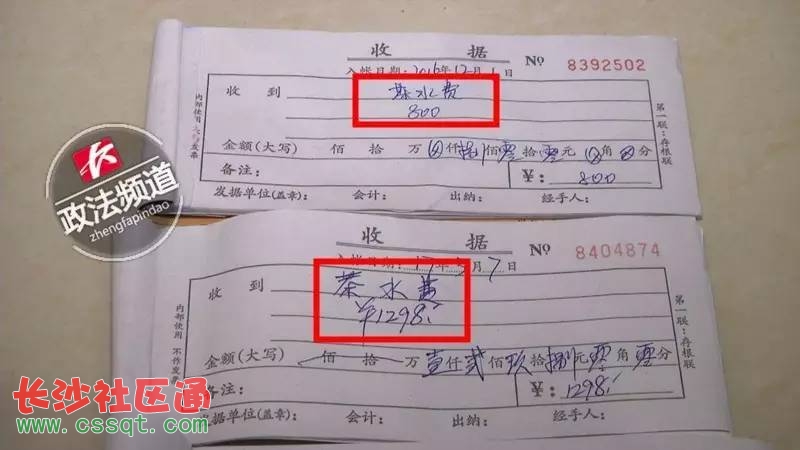 收 据 No 8392502
入帐日期:2016年12月1日
收 到 茶水费
800
金额(大写) 佰 拾 万 仟 捌 佰 零 拾 零 元 角 分
备注: ¥: 800
发据单位(盖章): 会计: 出纳: 经手人:
内部使用
第一联:存根联
政法频道
zhengfapindao
收 据 No 8404874
入帐日期:17年 月7日
收 到 茶水费
¥1298
金额(大写) 佰 拾 万 壹 仟 贰 佰 玖 拾 捌 元 零 角 零 分
备注: ¥: 1298
发据单位(盖章): 会计: 出纳: 经手人:
内部使用 不作发票
第一联:存根联
长沙社区通
www.cssqt.com